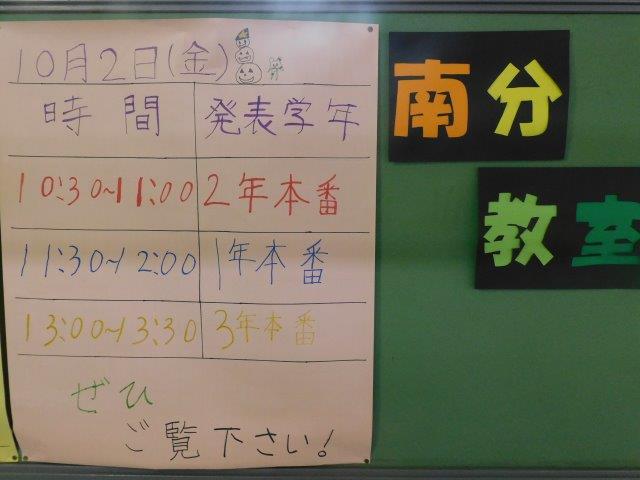 10月2日(金)
時間 発表学年
10:30~11:00 2年本番
11:30~12:00 1年本番
13:00~13:30 3年本番
ぜひ
ご覧下さい!
南分
教室